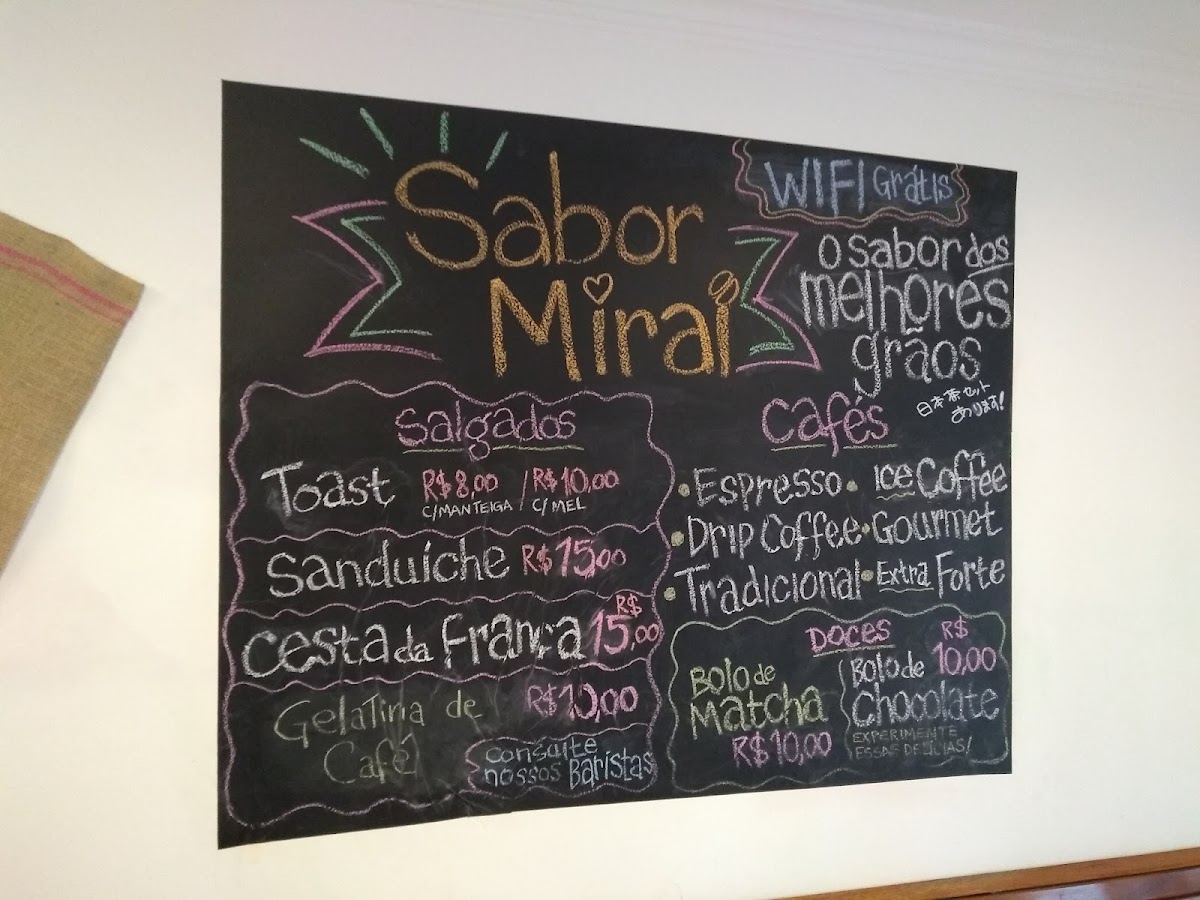 Sabor
Mirai
WIFI Grátis
O sabor dos
melhores
grãos
日本茶セット
あります!
Salgados
Toast R$8,00 / R$10,00
C/MANTEIGA C/ MEL
Sanduíche R$15,00
Cesta da França R$ 15,00
Gelatina de R$10,00
Café
Consulte
nossos Baristas
Cafés
• Espresso • Ice Coffee
• Drip Coffee • Gourmet
• Tradicional • Extra Forte
Doces
Bolo de
Matcha
R$10,00
R$
Bolo de 10,00
Chocolate
EXPERIMENTE
ESSAS DELÍCIAS!